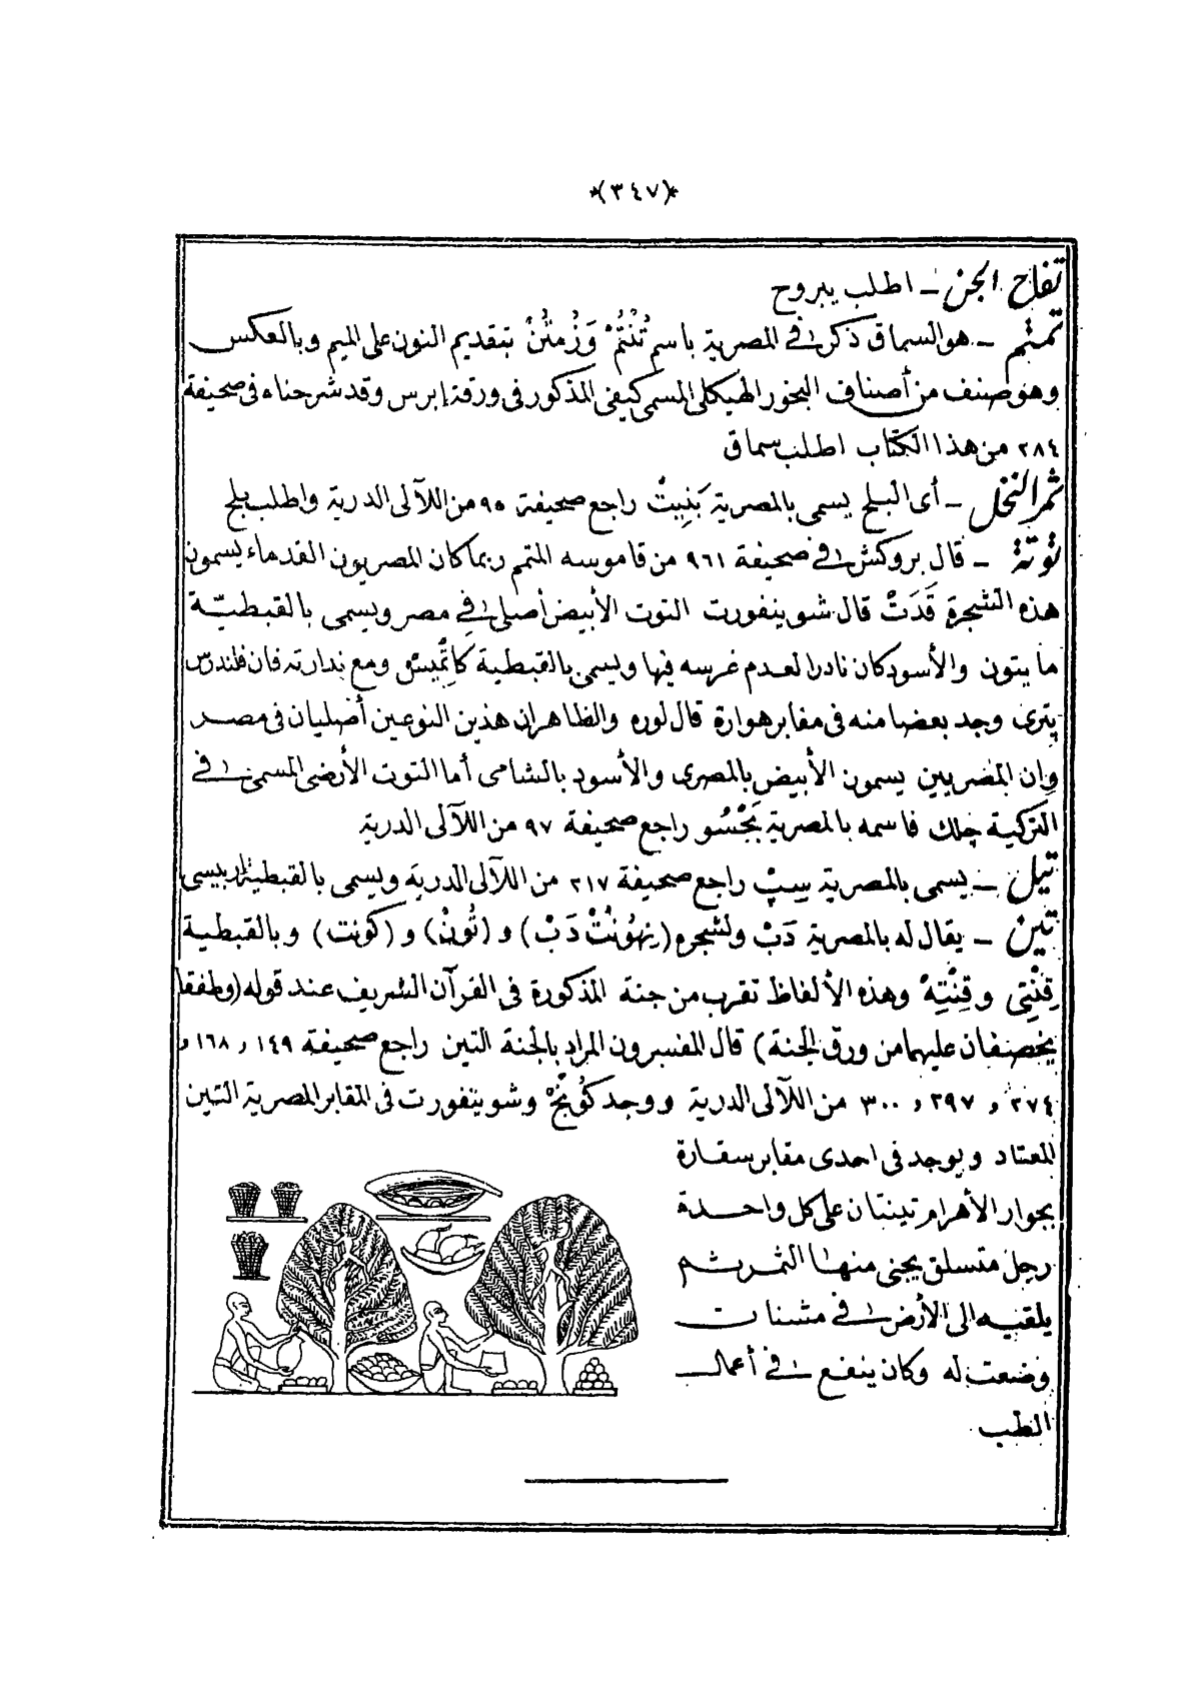 *(٣٤٧)*
تفاح الجن ـ اطلب يبروح
تمتم ـ هو السماق ذكر فى المصرية باسم تُنْتُمْ وَزُمْتُنْ بتقديم النون على الميم وبالعكس
وهو صنف من أصناف البخور الهيكلى المسمى كيفى المذكور فى ورقة إبرس وقد شرحناه فى صحيفة
٢٨٤ من هذا الكتاب اطلب سماق
ثمر النخل ـ أى البلح يسمى بالمصرية بَنِيتْ راجع صحيفة ٩٥ من اللآلى الدرية واطلب بلح
توتة ـ قال بروكش فى صحيفة ٩٦١ من قاموسه المتمم ربما كان المصريون القدماء يسمون
هذه الشجرة قَدَتْ قال شوينفورت التوت الأبيض أصلى فى مصر ويسمى بالقبطيّة
مايتون والأسود كان نادرا لعدم غرسه فيها ويسمى بالقبطية ومع ندارته فان فلندرس
پترى وجد بعضا منه فى مقابر هوارة قال لوره والظاهر ان هذين النوعين أصليان فى مصر
وان المصريين يسمون الأبيض بالمصرى والأسود بالشامى أما التوت الأرضى المسمى فى
التركية چلك فاسمه بالمصرية بَجْسُو راجع صحيفة ٩٧ من اللآلى الدرية
تيل ـ يسمى بالمصرية سِپْ راجع صحيفة ٢١٧ من اللآلى الدرية ويسمى بالقبطية
تين ـ يقال له بالمصرية دَبْ ولشجره (نِهُونْتْ دَبْ) و (تُونْ) و (كونت) وبالقبطية
قِنْتِى وقِنْتِهْ وهذه الألفاظ تقرب من جنة المذكورة فى القرآن الشريف عند قوله (وطفقا
يخصفان عليهما من ورق الجنة) قال المفسرون المراد بالجنة التين راجع صحيفة ١٤٩ و ١٦٨ و
٢٧٤ و ٢٩٧ و ٣٠٠ من اللآلى الدرية ووجد وشوينفورت فى المقابر المصرية التين
المعتاد ويوجد فى احدى مقابر سقارة
بجوار الأهرام تينتان على كل واحدة
رجل متسلق يجنى منها الثمر ثم
يلقيه الى الأرض فى مشنات
وضعت له وكان ينفع فى أعمال
الطب